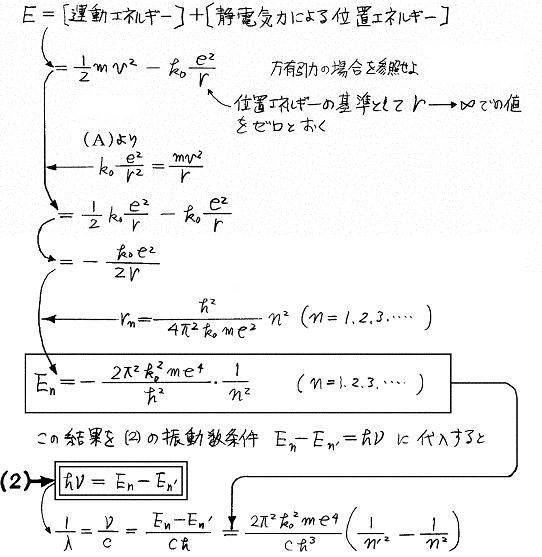 E = [運動エネルギー] + [静電気力による位置エネルギー]
= 1/2 mv² − k₀ e²/r 万有引力の場合を参照せよ
位置エネルギーの基準として r → ∞ での値
をゼロとおく
(A)より
k₀ e²/r² = mv²/r
= 1/2 k₀ e²/r − k₀ e²/r
= − k₀e²/2r
rₙ = h²/4π²k₀me² n² (n = 1, 2, 3, ‥‥)
Eₙ = − 2π²k₀²me⁴/h² · 1/n² (n = 1, 2, 3, ‥‥)
この結果を(2)の振動数条件 Eₙ − Eₙ′ = hν に代入すると
(2) hν = Eₙ − Eₙ′
1/λ = ν/c = Eₙ − Eₙ′/ch = 2π²k₀²me⁴/ch³ (1/n′² − 1/n²)